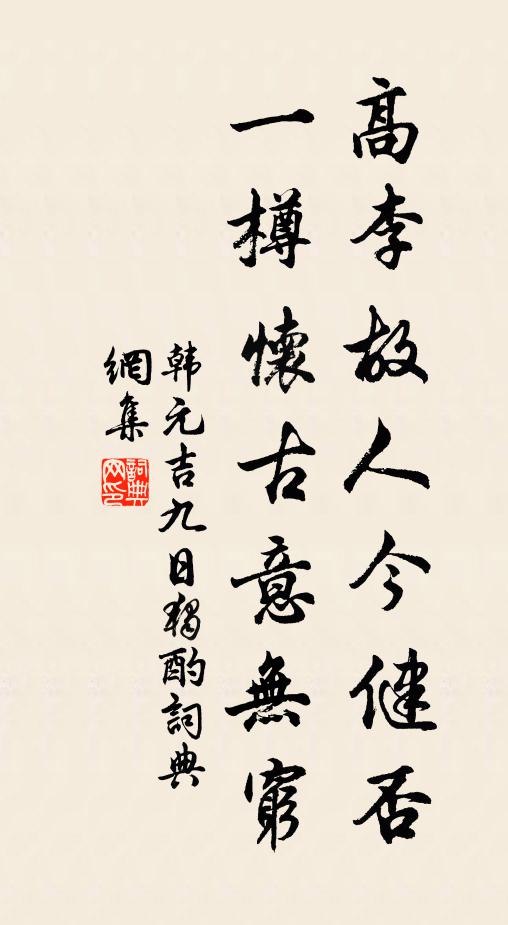 高李故人今健否
一樽懷古意無窮
韩元吉九日獨酌詞典
網集
詞典
网印